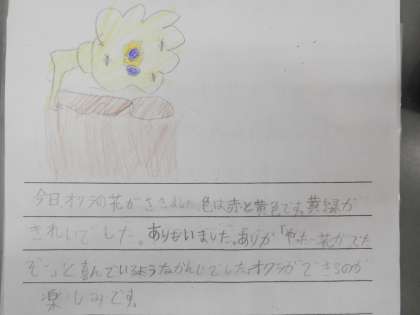 今日オクラの花がさきました色は赤と黄色です。黄緑が
きれいでした。ありもいました。ありが「やったー花がでた
ぞー」と喜んでいるようなかんじでしたオクラができるのが
楽しみです。